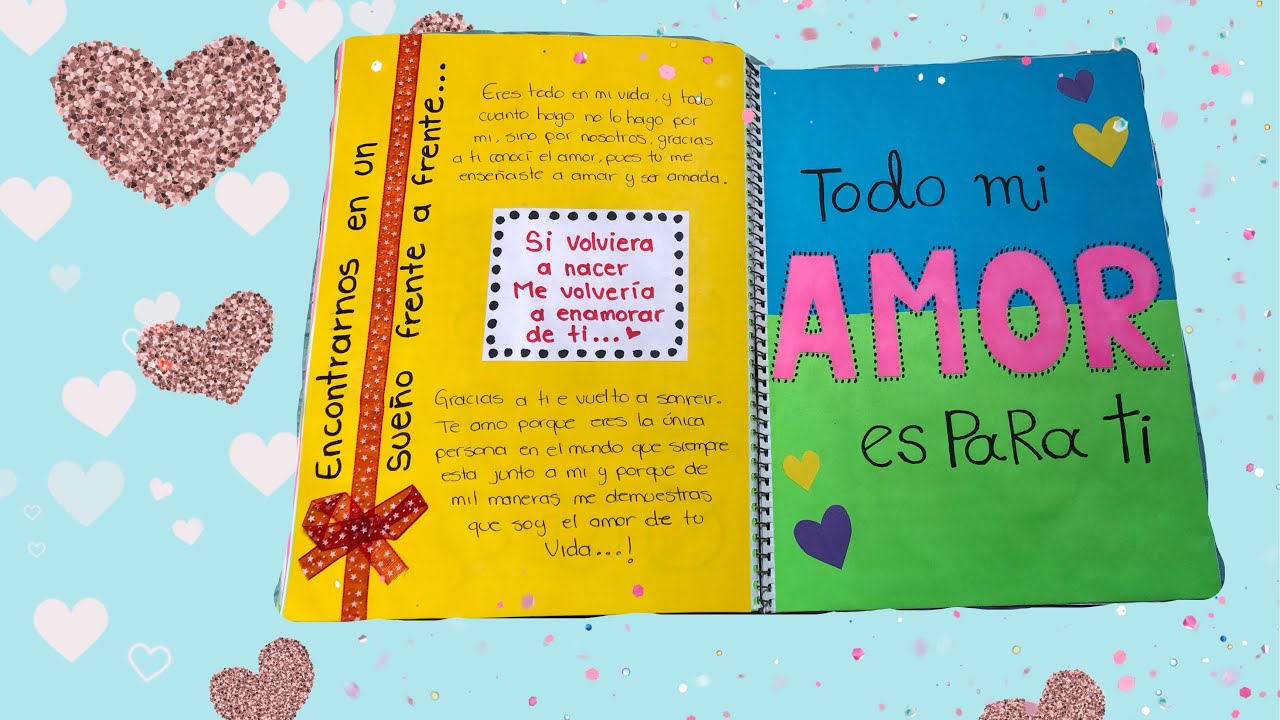 Encontrarnos en un
sueño frente a frente...
Eres todo en mi vida, y todo
cuanto hago no lo hago por
mi, sino por nosotros, gracias
a ti conocí el amor, pues tu me
enseñaste a amar y ser amada.
Si volviera
a nacer
Me volvería
a enamorar
de ti...
Gracias a ti e vuelto a sonreir.
Te amo porque eres la única
persona en el mundo que siempre
esta junto a mi y porque de
mil maneras me demuestras
que soy el amor de tu
Vida...!
Todo mi
AMOR
es PaRa ti